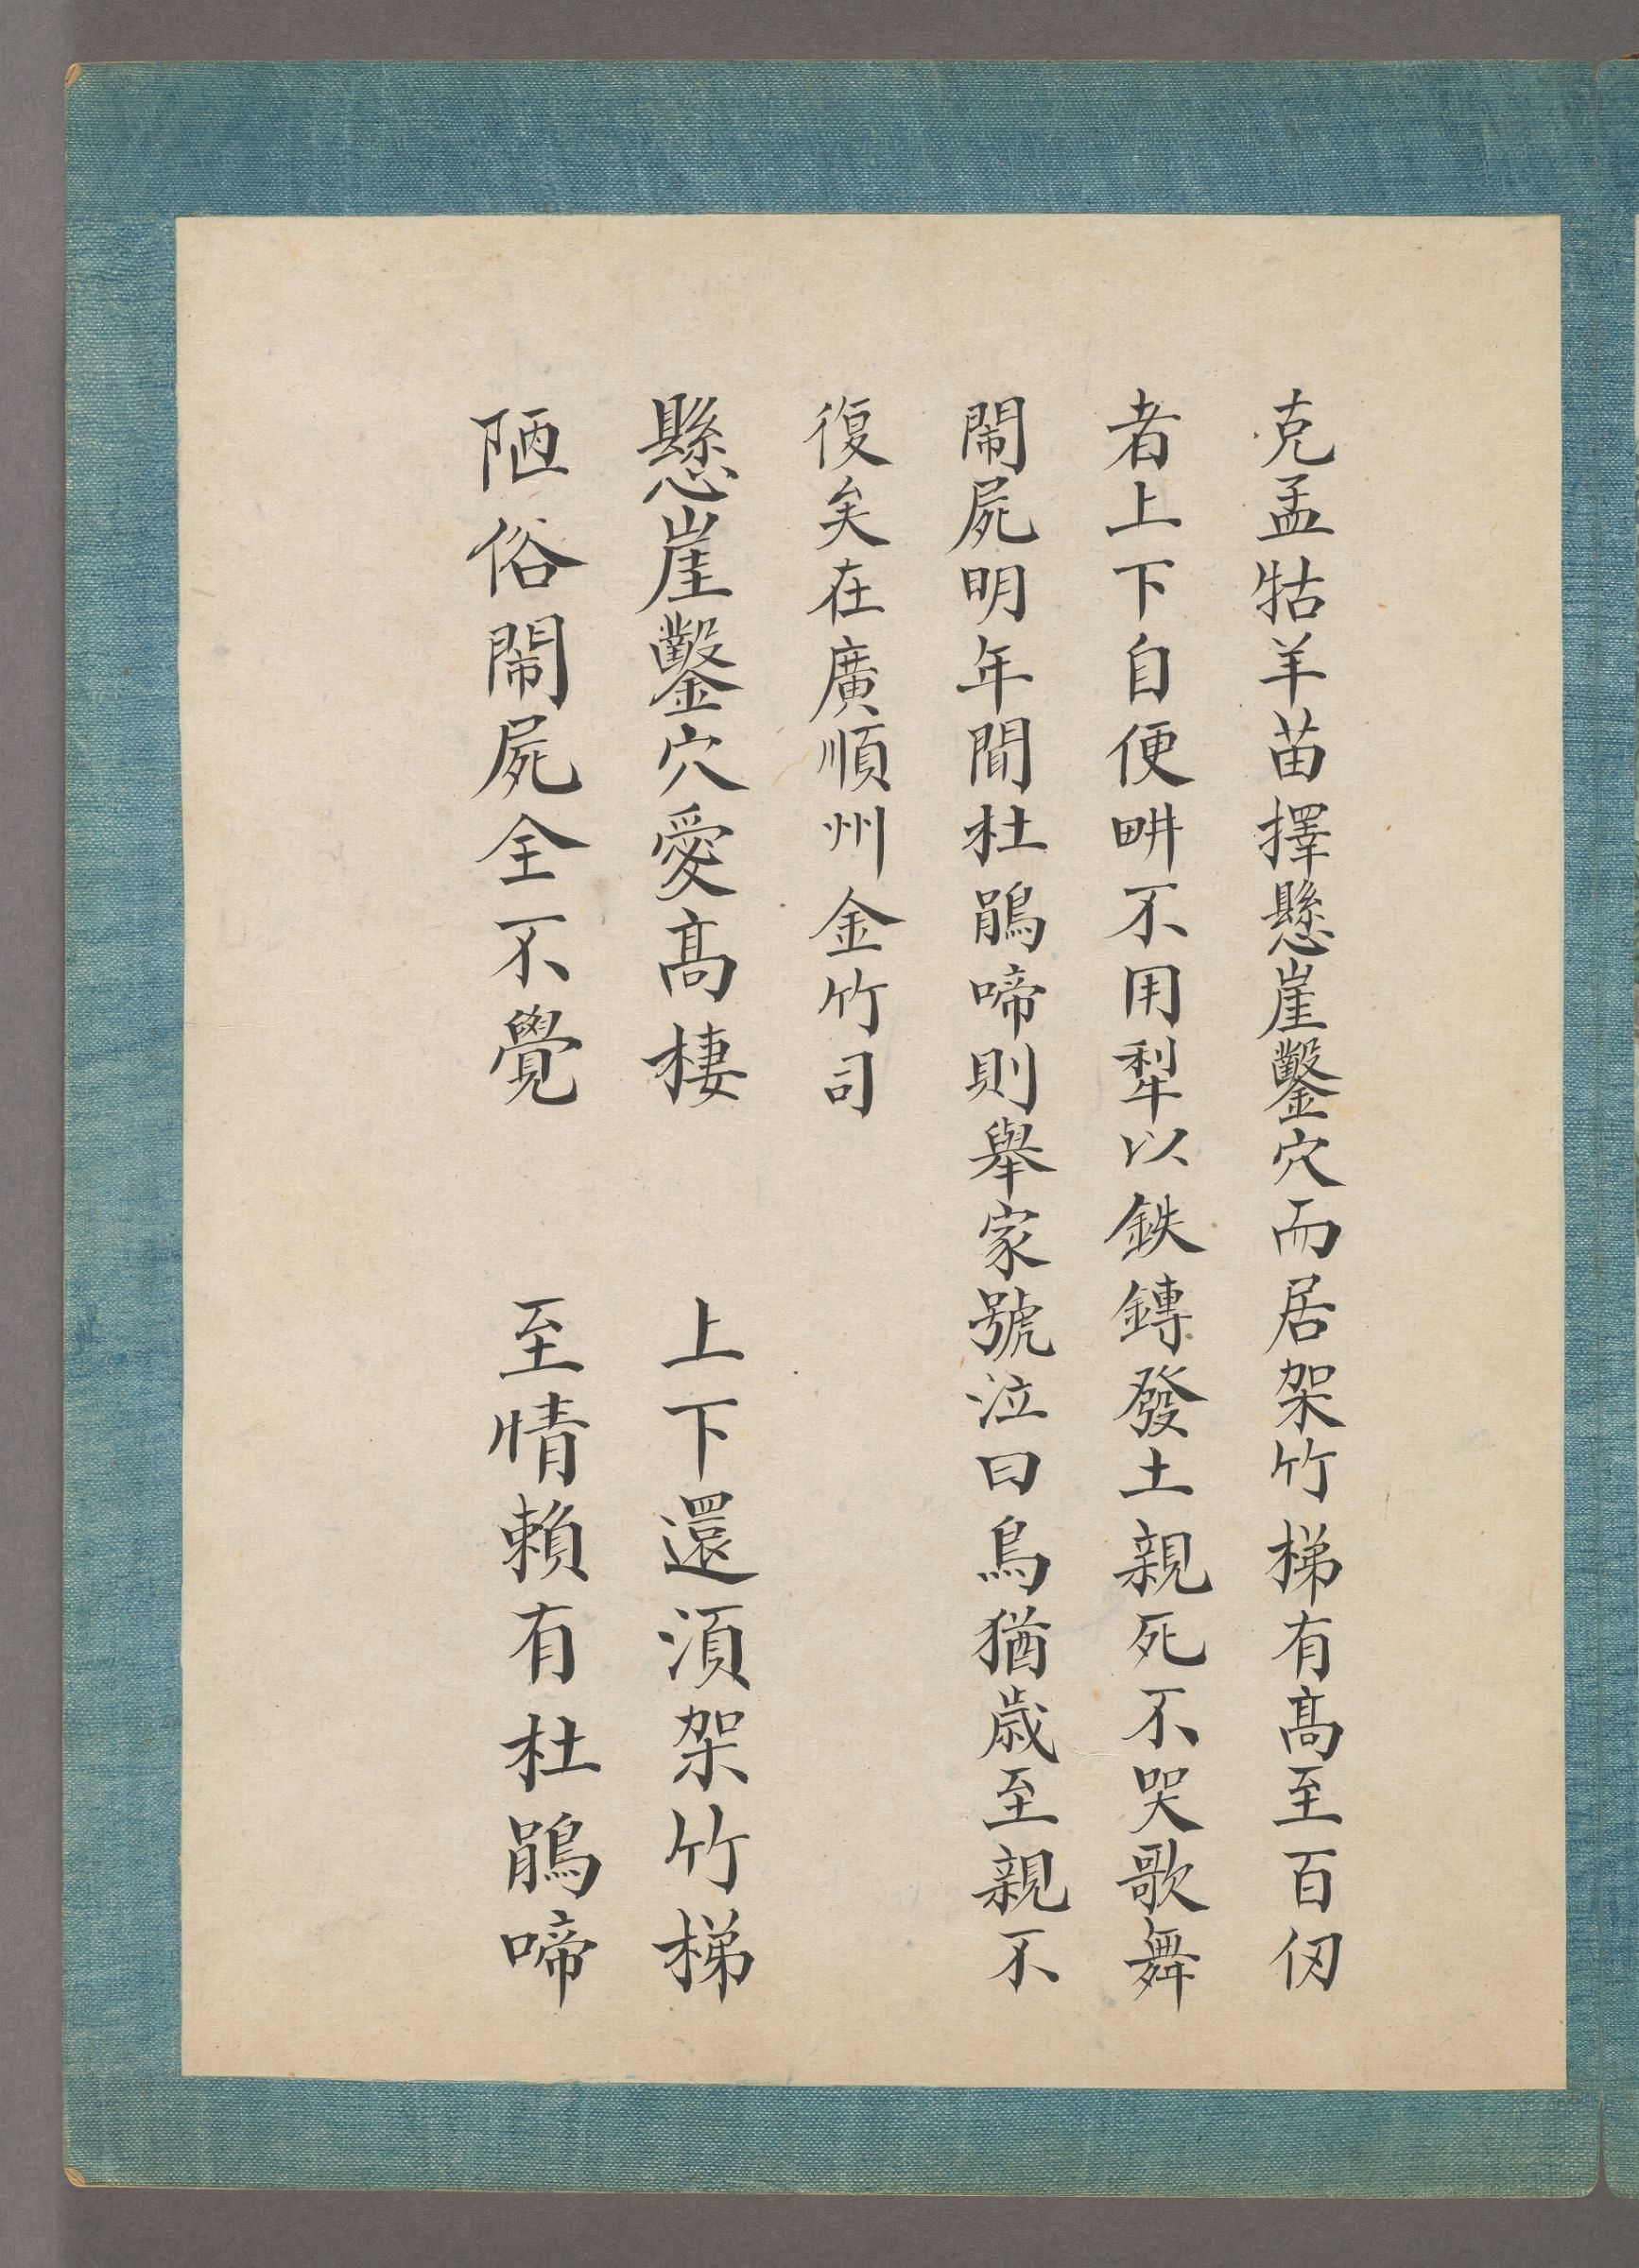 克孟牯羊苗擇懸崖鑿穴而居架竹梯有髙至百仞
者上下自便畊不用犁以鉄鎛發土親死不哭歌舞
閙屍明年間杜鵑啼則舉家號泣曰鳥猶歲至親不
復矣在廣順州金竹司
懸崖鑿穴愛髙棲　上下還湏架竹梯
陋俗閙屍全不覺　至情賴有杜鵑啼